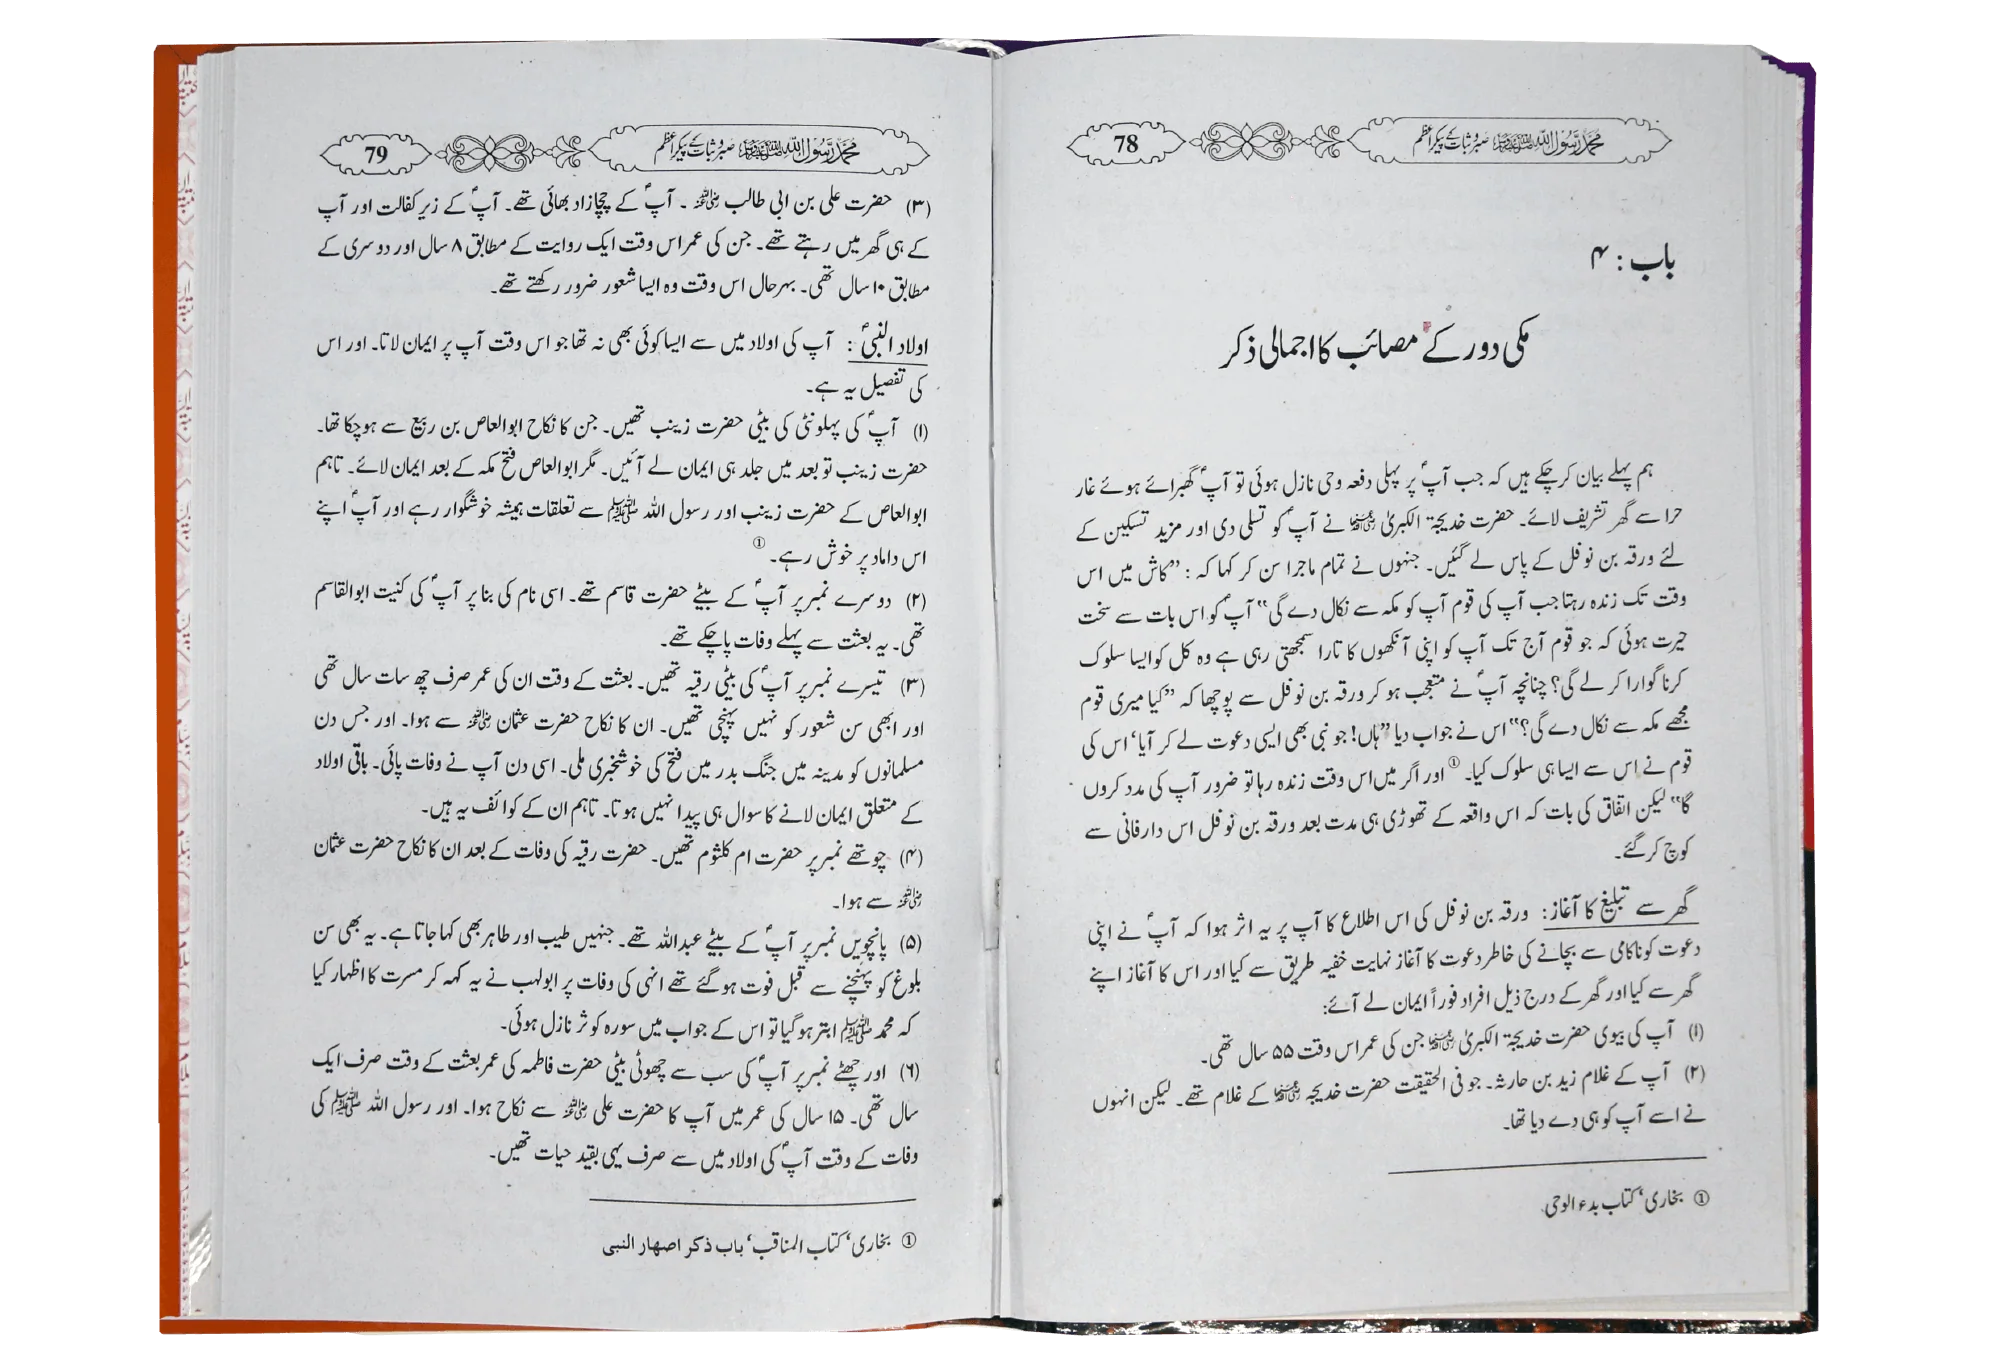 محمد رسول اللہ ﷺ صبر و ثبات کے پیکر اعظم
78
باب : ۴
مکی دور کے مصائب کا اجمالی ذکر
ہم پہلے بیان کر چکے ہیں کہ جب آپؐ پر پہلی دفعہ وحی نازل ہوئی تو آپؐ گھبرائے ہوئے غار
حرا سے گھر تشریف لائے۔ حضرت خدیجۃ الکبریٰ رضی اللہ عنہا نے آپؐ کو تسلی دی اور مزید تسکین کے
لئے ورقہ بن نوفل کے پاس لے گئیں۔ جنہوں نے تمام ماجرا سن کر کہا کہ : ”کاش میں اس
وقت تک زندہ رہتا جب آپ کی قوم آپ کو مکہ سے نکال دے گی“ آپؐ کو اس بات سے سخت
حیرت ہوئی کہ جو قوم آج تک آپ کو اپنی آنکھوں کا تارا سمجھتی رہی ہے وہ کل کو ایسا سلوک
کرنا گوارا کر لے گی؟ چنانچہ آپؐ نے متعجب ہو کر ورقہ بن نوفل سے پوچھا کہ ”کیا میری قوم
مجھے مکہ سے نکال دے گی؟“ اس نے جواب دیا ”ہاں! جو نبی بھی ایسی دعوت لے کر آیا‘ اس کی
قوم نے اس سے ایسا ہی سلوک کیا۔ ① اور اگر میں اس وقت زندہ رہا تو ضرور آپ کی مدد کروں
گا“ لیکن اتفاق کی بات کہ اس واقعہ کے تھوڑی ہی مدت بعد ورقہ بن نوفل اس دار فانی سے
کوچ کر گئے۔
گھر سے تبلیغ کا آغاز: ورقہ بن نوفل کی اس اطلاع کا آپ پر یہ اثر ہوا کہ آپؐ نے اپنی
دعوت کو ناکامی سے بچانے کی خاطر دعوت کا آغاز نہایت خفیہ طریق سے کیا اور اس کا آغاز اپنے
گھر سے کیا اور گھر کے درج ذیل افراد فوراً ایمان لے آئے:
(۱) آپ کی بیوی حضرت خدیجۃ الکبریٰ رضی اللہ عنہا جن کی عمر اس وقت ۵۵ سال تھی۔
(۲) آپ کے غلام زید بن حارثہ۔ جو فی الحقیقت حضرت خدیجہ رضی اللہ عنہا کے غلام تھے۔ لیکن انہوں
نے اسے آپ کو ہی دے دیا تھا۔
① بخاری‘ کتاب بدء الوحی
محمد رسول اللہ ﷺ صبر و ثبات کے پیکر اعظم
79
(۳) حضرت علی بن ابی طالب رضی اللہ عنہ ۔ آپؐ کے چچازاد بھائی تھے۔ آپؐ کے زیر کفالت اور آپ
کے ہی گھر میں رہتے تھے۔ جن کی عمر اس وقت ایک روایت کے مطابق ۸ سال اور دوسری کے
مطابق ۱۰ سال تھی۔ بہرحال اس وقت وہ ایسا شعور ضرور رکھتے تھے۔
اولاد النبیؐ : آپ کی اولاد میں سے ایسا کوئی بھی نہ تھا جو اس وقت آپ پر ایمان لاتا۔ اور اس
کی تفصیل یہ ہے۔
(۱) آپؐ کی پہلونٹی کی بیٹی حضرت زینب تھیں۔ جن کا نکاح ابوالعاص بن ربیع سے ہو چکا تھا۔
حضرت زینب تو بعد میں جلد ہی ایمان لے آئیں۔ مگر ابوالعاص فتح مکہ کے بعد ایمان لائے۔ تاہم
ابوالعاص کے حضرت زینب اور رسول اللہ ﷺ سے تعلقات ہمیشہ خوشگوار رہے اور آپؐ اپنے
اس داماد پر خوش رہے۔ ①
(۲) دوسرے نمبر پر آپؐ کے بیٹے حضرت قاسم تھے۔ اسی نام کی بنا پر آپؐ کی کنیت ابوالقاسم
تھی۔ یہ بعثت سے پہلے وفات پا چکے تھے۔
(۳) تیسرے نمبر پر آپؐ کی بیٹی رقیہ تھیں۔ بعثت کے وقت ان کی عمر صرف چھ سات سال تھی
اور ابھی سن شعور کو نہیں پہنچی تھیں۔ ان کا نکاح حضرت عثمان رضی اللہ عنہ سے ہوا۔ اور جس دن
مسلمانوں کو مدینہ میں جنگ بدر میں فتح کی خوشخبری ملی۔ اسی دن آپ نے وفات پائی۔ باقی اولاد
کے متعلق ایمان لانے کا سوال ہی پیدا نہیں ہوتا۔ تاہم ان کے کوائف یہ ہیں۔
(۴) چوتھے نمبر پر حضرت ام کلثوم تھیں۔ حضرت رقیہ کی وفات کے بعد ان کا نکاح حضرت عثمان
رضی اللہ عنہ سے ہوا۔
(۵) پانچویں نمبر پر آپؐ کے بیٹے عبداللہ تھے۔ جنہیں طیب اور طاہر بھی کہا جاتا ہے۔ یہ بھی سن
بلوغ کو پہنچنے سے قبل فوت ہو گئے تھے انہی کی وفات پر ابولہب نے یہ کہہ کر مسرت کا اظہار کیا
کہ محمد ﷺ ابتر ہو گیا تو اس کے جواب میں سورہ کوثر نازل ہوئی۔
(۶) اور چھٹے نمبر پر آپؐ کی سب سے چھوٹی بیٹی حضرت فاطمہ کی عمر بعثت کے وقت صرف ایک
سال تھی۔ ۱۵ سال کی عمر میں آپ کا حضرت علی رضی اللہ عنہ سے نکاح ہوا۔ اور رسول اللہ ﷺ کی
وفات کے وقت آپؐ کی اولاد میں سے صرف یہی بقید حیات تھیں۔
① بخاری‘ کتاب المناقب‘ باب ذکر اصهار النبی